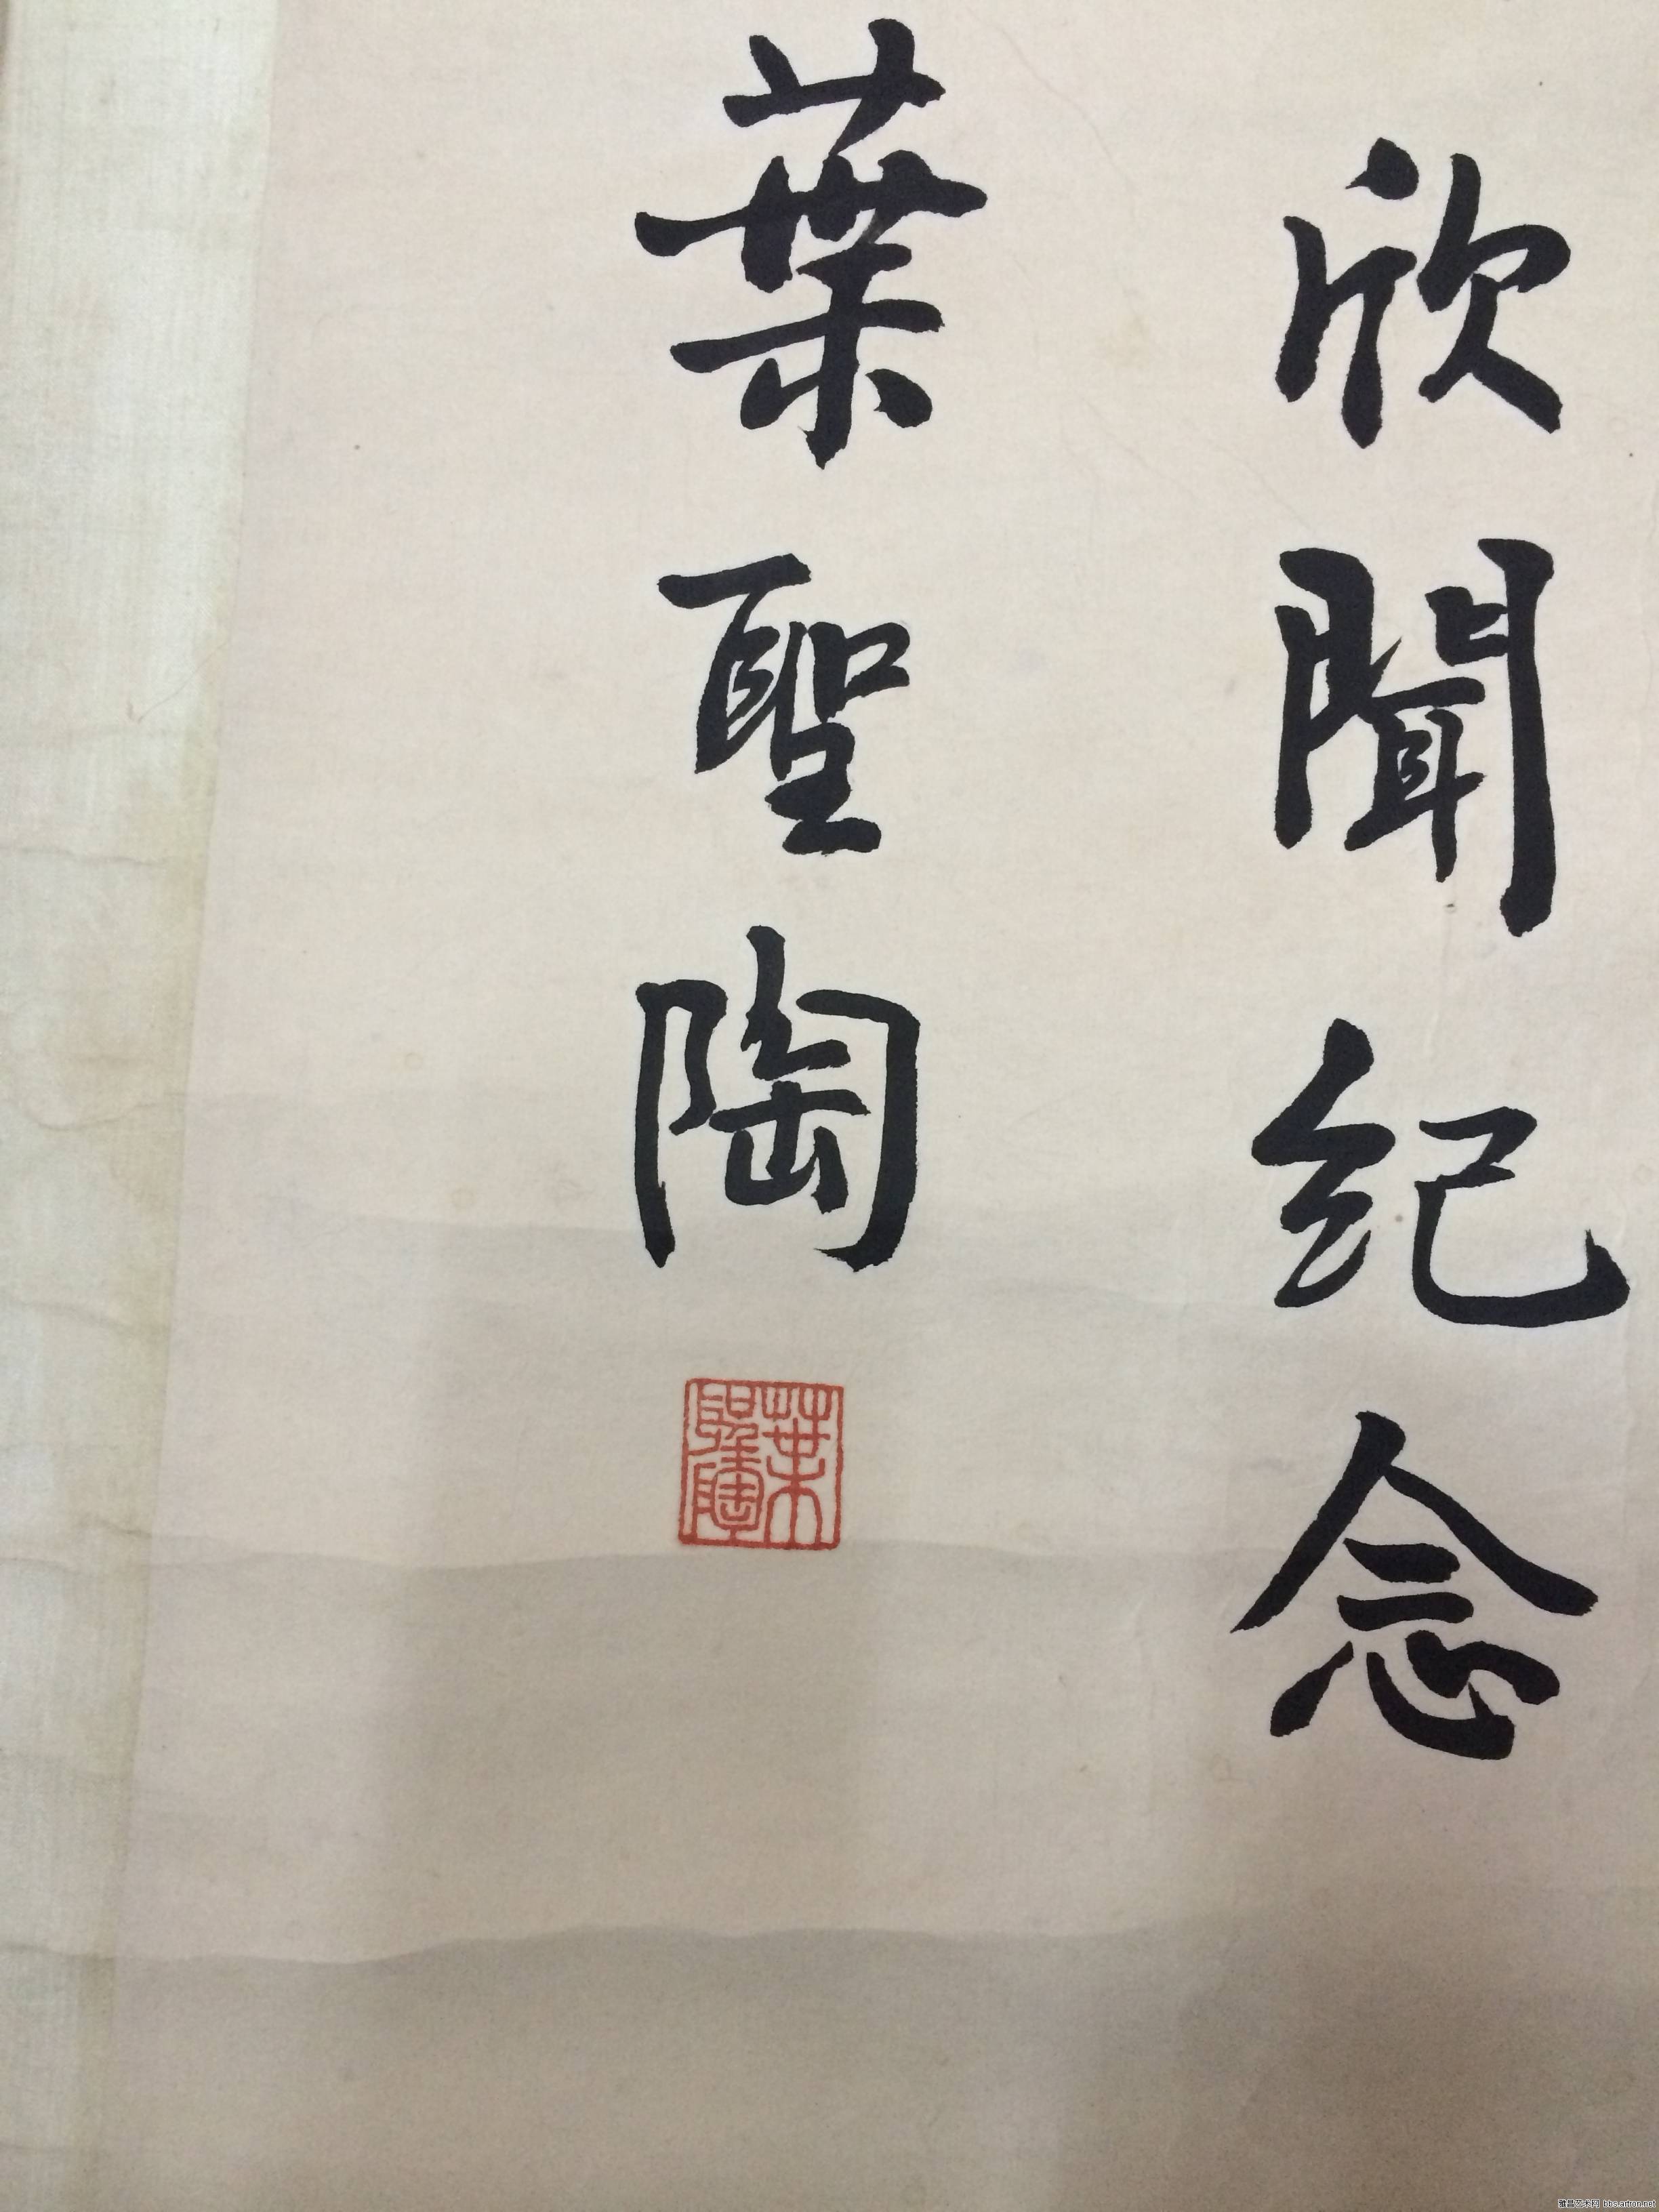 欣聞纪念
葉聖陶
葉聖陶
雅昌艺术网 bbs.artron.net